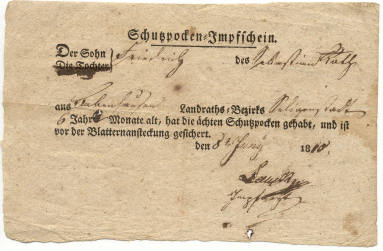 Schutzpocken-Impfschein.
Der Sohn Friedrich des Sebastian
Die Tochter
aus Landraths-Bezirks Seligenstadt
6 Jahre Monate alt, hat die ächten Schutzpocken gehabt, und ist
vor der Blatternansteckung gesichert.
den 8t Juny 18
Impfarzt